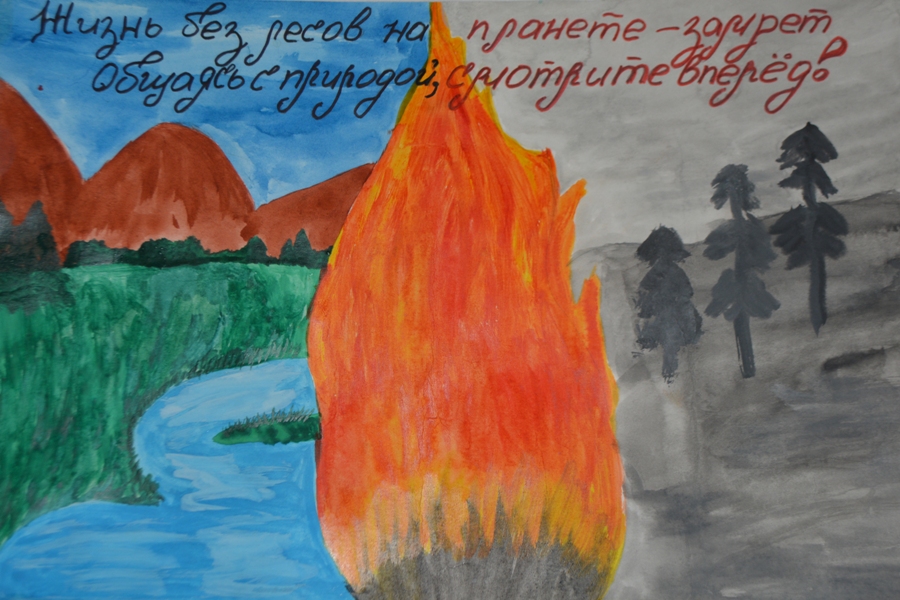 Жизнь без лесов на планете - замрет
Общаясь с природой, смотрите вперёд!